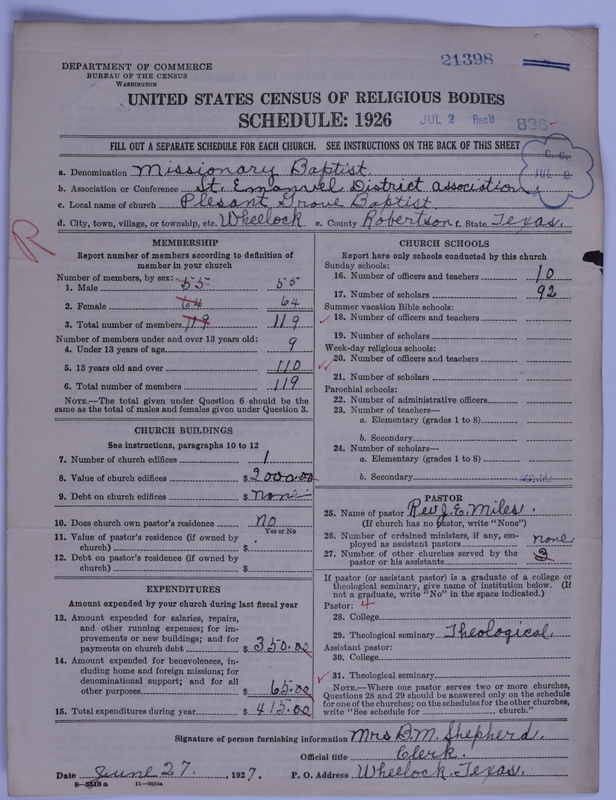 21398
DEPARTMENT OF COMMERCE
BUREAU OF THE CENSUS
WASHINGTON
UNITED STATES CENSUS OF RELIGIOUS BODIES
SCHEDULE: 1926
JUL 2 Rec'd 836-
FILL OUT A SEPARATE SCHEDULE FOR EACH CHURCH. SEE INSTRUCTIONS ON THE BACK OF THIS SHEET
C. C.
JUL 2
a. Denomination Missionary Baptist
b. Association or Conference St. Emanuel District Association.
c. Local name of church Plesant Grove Baptist
d. City, town, village, or township, etc. Wheelock e. County Robertson f. State Texas.
R
MEMBERSHIP
Report number of members according to definition of
member in your church
Number of members, by sex:
1. Male 55 55
2. Female 64 64
3. Total number of members 119 119
Number of members under and over 13 years old:
4. Under 13 years of age 9
5. 13 years old and over 110
6. Total number of members 119
NOTE.—The total given under Question 6 should be the
same as the total of males and females given under Question 3.
CHURCH BUILDINGS
See instructions, paragraphs 10 to 12
7. Number of church edifices 1
8. Value of church edifices $ 2000.00
9. Debt on church edifices $ None
10. Does church own pastor's residence no
Yes or No
11. Value of pastor's residence (if owned by
church) $
12. Debt on pastor's residence (if owned by
church) $
EXPENDITURES
Amount expended by your church during last fiscal year
13. Amount expended for salaries, repairs,
and other running expenses; for im-
provements or new buildings; and for
payments on church debt $ 350.00
14. Amount expended for benevolences, in-
cluding home and foreign missions; for
denominational support; and for all
other purposes $ 65.00
15. Total expenditures during year $ 415.00
CHURCH SCHOOLS
Report here only schools conducted by this church
Sunday schools:
16. Number of officers and teachers 10
17. Number of scholars 92
Summer vacation Bible schools:
18. Number of officers and teachers
19. Number of scholars
Week-day religious schools:
20. Number of officers and teachers
21. Number of scholars
Parochial schools:
22. Number of administrative officers
23. Number of teachers—
a. Elementary (grades 1 to 8)
b. Secondary
24. Number of scholars—
a. Elementary (grades 1 to 8)
b. Secondary
PASTOR
25. Name of pastor Rev J. E. Miles.
(If church has no pastor, write "None")
26. Number of ordained ministers, if any, em-
ployed as assistant pastors none
27. Number of other churches served by the
pastor or his assistants
If pastor (or assistant pastor) is a graduate of a college or
theological seminary, give name of institution below. (If
not a graduate, write "No" in the space indicated.)
Pastor: 4
28. College
29. Theological seminary Theological.
Assistant pastor:
30. College
31. Theological seminary
NOTE.—Where one pastor serves two or more churches,
Questions 28 and 29 should be answered only on the schedule
for one of the churches; on the schedules for the other churches,
write "See schedule for church."
Signature of person furnishing information Mrs B. M. Shepherd.
Official title Clerk.
Date June 27, 1927. P. O. Address Wheelock Texas.
8—5518 a